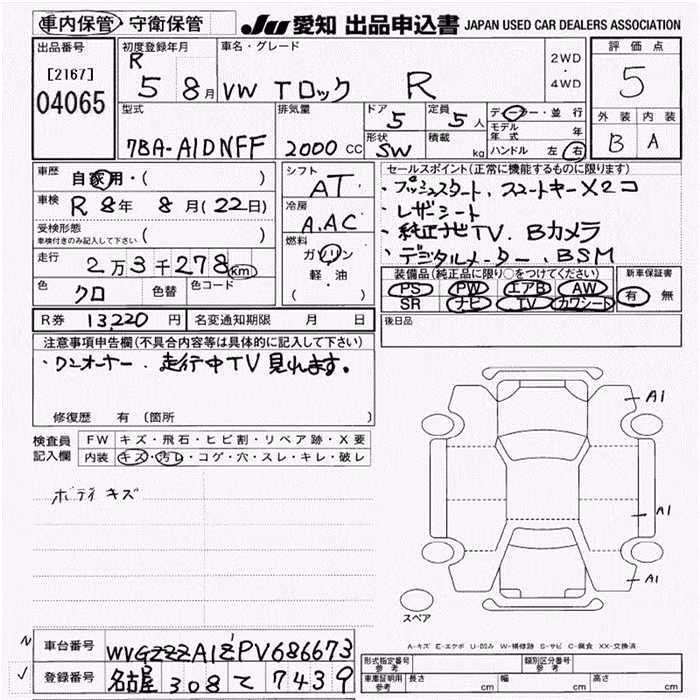 車内保管・守衛保管 Ju 愛知 出品申込書 JAPAN USED CAR DEALERS ASSOCIATION
出品番号 初度登録年月 車名・グレード 評価点
[2167] R 2WD
04065 5 8月 VW Tロック R ・4WD 5
型式 排気量 ドア 5 定員 5人 ディーラー・並行 外装 内装
7BA-A1DNFF 2000 CC 形状 SW 積載 kg モデル年式 年 B A
ハンドル 左 右
車歴 自家用・( ) シフト AT セールスポイント(正常に機能するものに限ります)
車検 R 8年 8月(22日) 冷房 A.AC ・プッシュスタート、スマートキー×2コ
受検形態 ・レザーシート
車検付きのみ記入して下さい ( ) 燃料 ・純正ナビTV.Bカメラ
走行 2万3千278km ガソリン ・デジタルメーター、BSM
色 クロ 色替 色コード 軽・油 ( ) 装備品(純正品に限り○をつけてください) 新車保証書
PS PW エアB AW 有 無
SR ナビ TV カワシート
R券 13,220円 名変通知期限 月 日 後日品
注意事項申告欄(不具合内容等は具体的に記入して下さい)
・ワンオーナー.走行中TV見れます。
修復歴 有 (箇所 )
検査員 FW キズ・飛石・ヒビ割・リペア跡・X要
記入欄 内装 キズ・汚れ・コゲ・穴・スレ・キレ・破レ
ボディキズ
A1
A1
A1
スペア
A-キズ E-エクボ U-凹み W-補修跡 S-サビ C-腐食 XX-交換済
車台番号 WVGZZZA1ZPV686673
登録番号 名古屋 308 て 7439
型式指定番号 参考 類別区分番号 参考
車庫証明用 参考 長さ cm 幅 cm 高さ cm